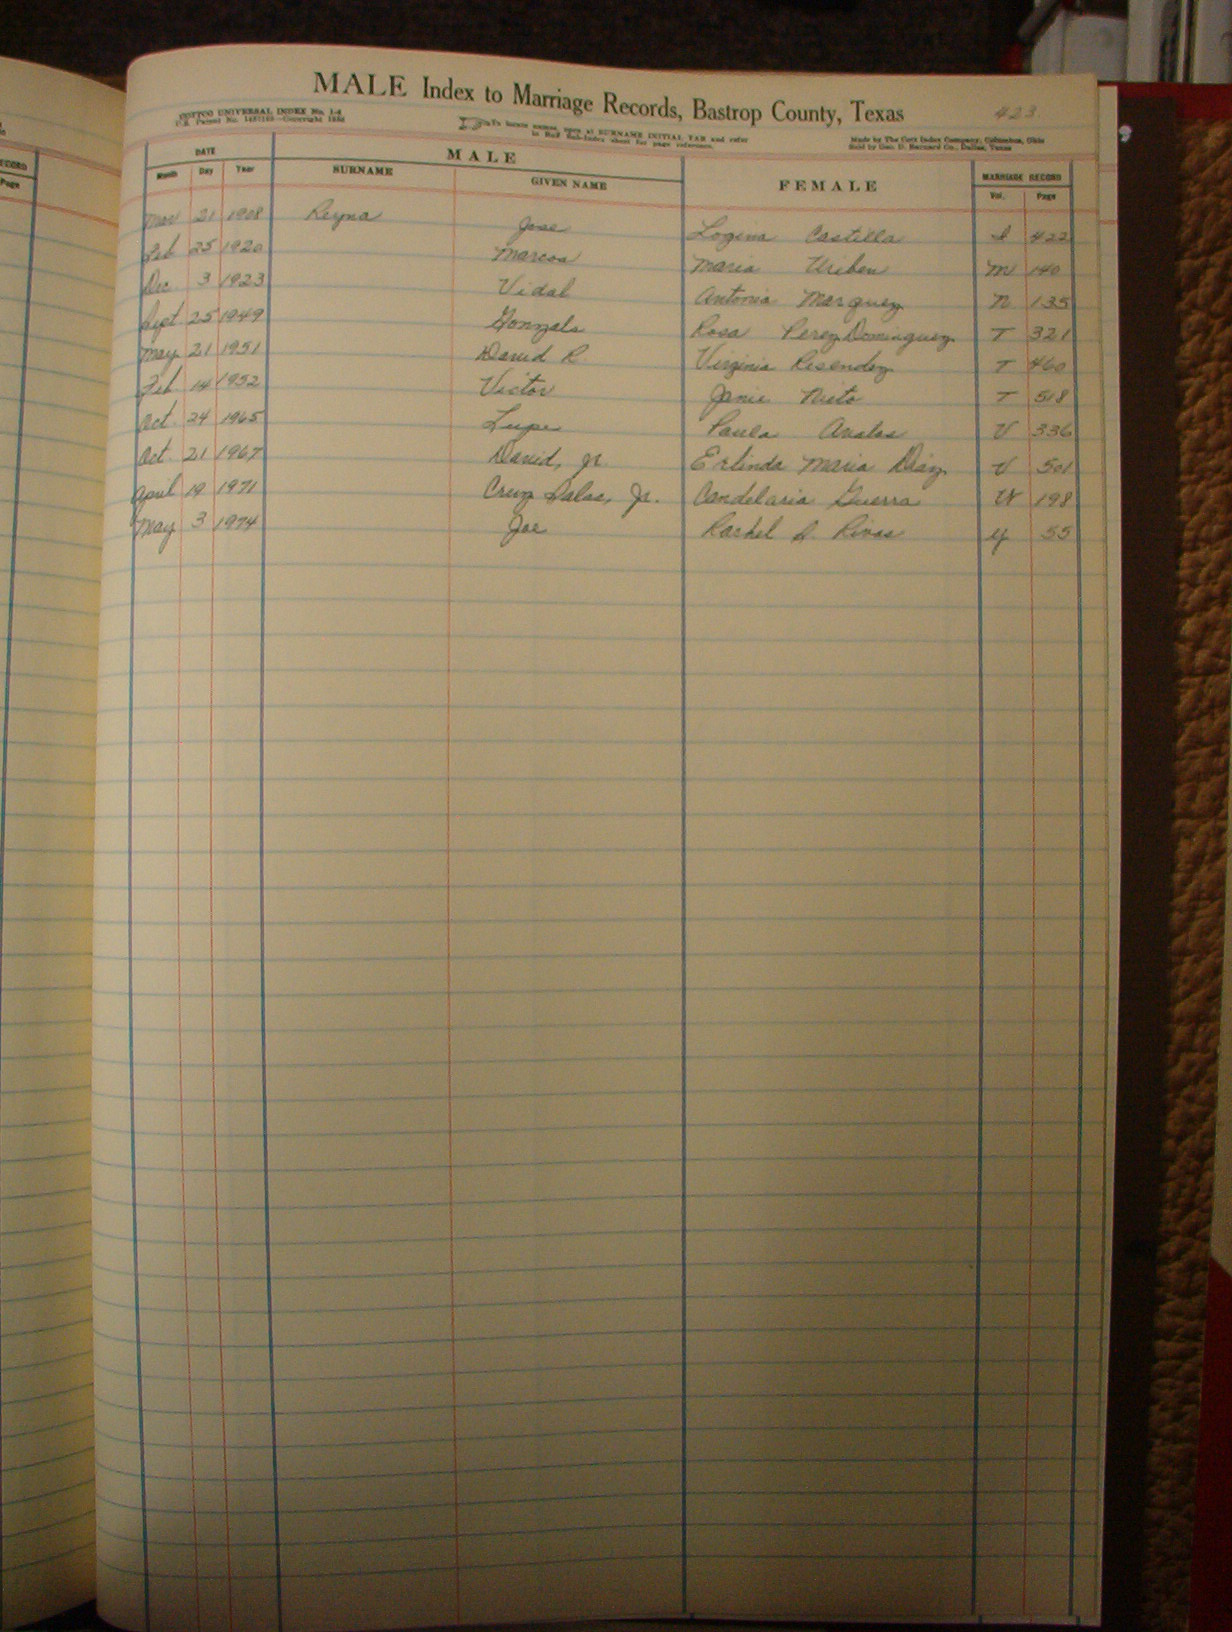 MALE Index to Marriage Records, Bastrop County, Texas 423
COTTCO UNIVERSAL INDEX No. 1-4
U.S. Patent No.
To locate names, open at SURNAME INITIAL TAB and refer
to Sub-Index sheet for page reference.
Made by The Cott Index Company, Columbus, Ohio
Sold by Geo. D. Barnard Co., Dallas, Texas
DATE MALE FEMALE MARRIAGE RECORD
Month Day Year SURNAME GIVEN NAME Vol. Page
Mar 21 1908 Reyna Jose Logina Castilla I 422
Feb 25 1920 Marcos Maria Uriben M 140
Dec 3 1923 Vidal Antonia Marquez N 135
Sept 25 1949 Gonzala Rosa Perez Dominguez T 321
May 21 1951 David R Virginia Resendez T 460
Feb 14 1952 Victor Janie Nieto T 518
Oct. 24 1965 Lupe Paula Avalos V 336
Oct. 21 1967 David, Jr. Erlinda Maria Diaz V 501
April 19 1971 Cruz Salas, Jr. Candelaria Guerra W 198
May 3 1974 Joe Rachel S. Rivas Y 55
Page